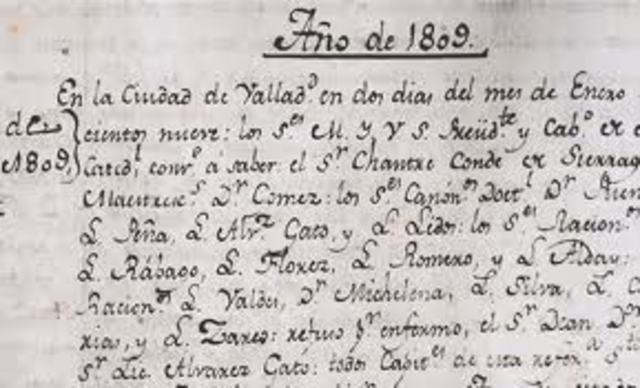 Año de 1809.
En la Ciudad de Vallad.ᵈ en dos dias del mes de Enero
de
cientos nueve: los S.ᵉˢ M. Y V S. y Cab.ᵒ
1809,
Cated.ˡ conv.ᵒ á saber: el S.ʳ Chantre Conde
D.ʳ Gomez: los S.ᵉˢ Canón.ᵒˢ Doct.ˡ D.ʳ
L. Peña, L. Alv.ᶻ Cato, y L. Lidos: los S.ᵉˢ Racion.ˢ
L. Rábago, L. Florez, L. Romero, y L. Alday:
Racion.ˢ L. Valdes, D.ʳ Michelena, L. Silva, L.
rias, y L. Zarco: retuvo p.ʳ enfermo, el S.ʳ Dean D.ʳ
S.ʳ Lic. Alvarez Cato: todos Capit.ˢ de esta